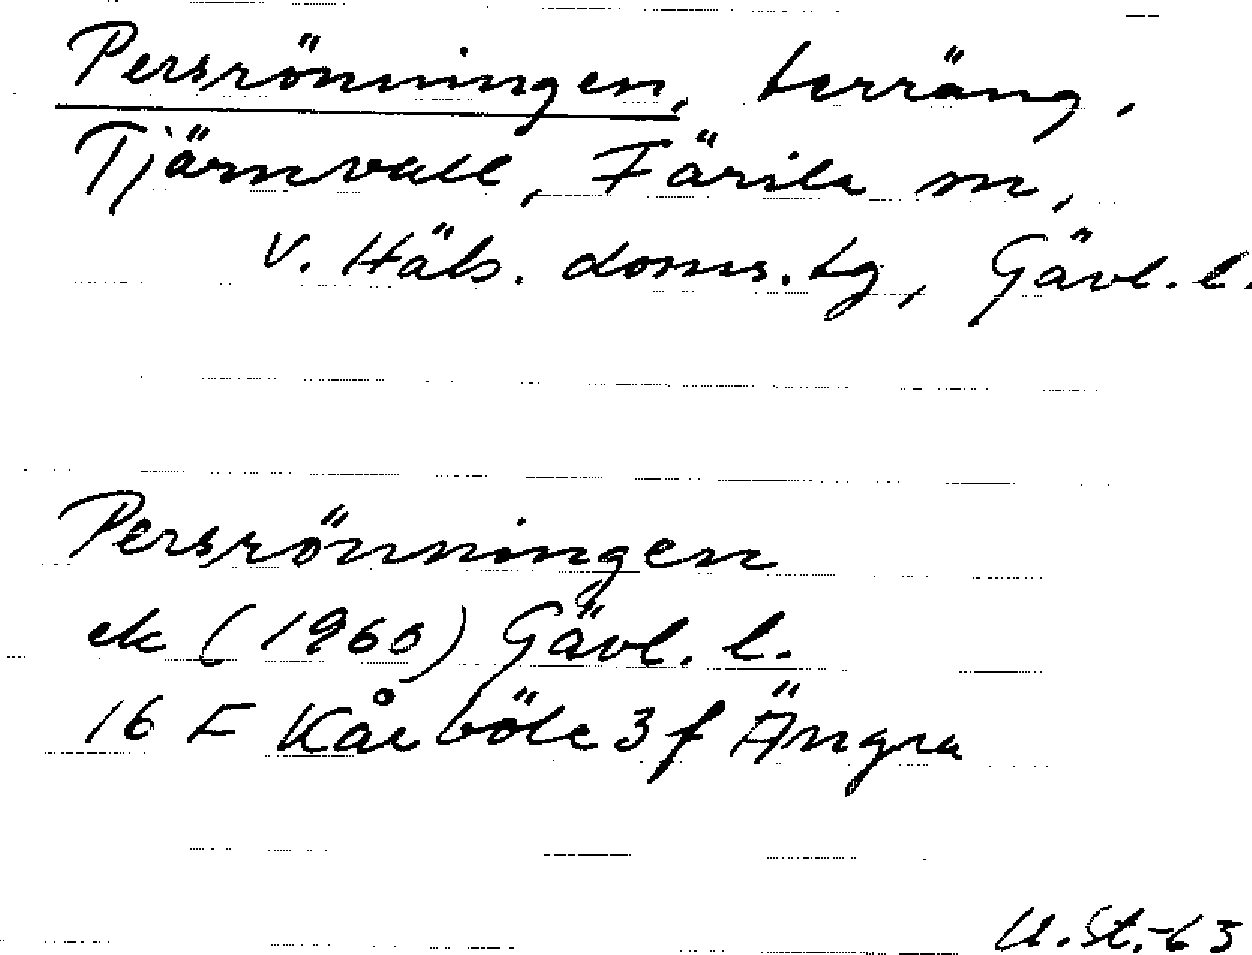 Persrönningen, terräng,
Tjärnvall, Färila sn,
v. Häls. doms.tg, Gävl. l.
Persrönningen
ek (1960) Gävl. l.
16 F Kårböle 3 f Ängra
U.St.-63